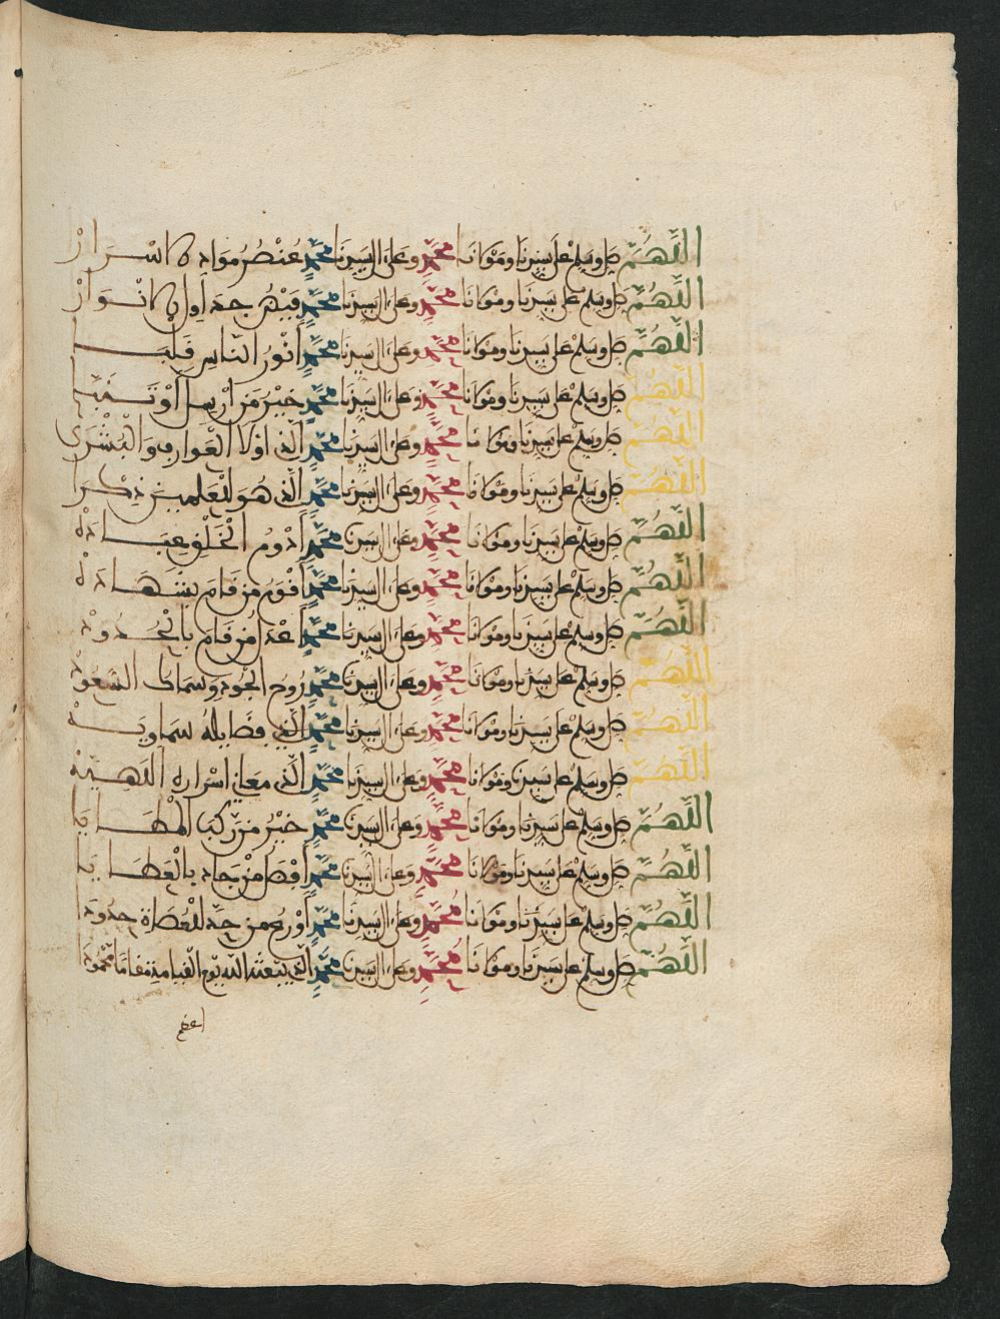 اللهم صل وسلم على سيدنا ومولانا محمد وعلى ال سيدنا محمد عنصر مواد الاسرار
اللهم صل وسلم على سيدنا ومولانا محمد وعلى ال سيدنا محمد اول الانوار
اللهم صل وسلم على سيدنا ومولانا محمد وعلى ال سيدنا محمد انور الناس قلبا
اللهم صل وسلم على سيدنا ومولانا محمد وعلى ال سيدنا محمد خير من ارسل او
اللهم صل وسلم على سيدنا ومولانا محمد وعلى ال سيدنا محمد الذي اولا العوارف والبشرى
اللهم صل وسلم على سيدنا ومولانا محمد وعلى ال سيدنا محمد الذي هو للعلمين ذكرا
اللهم صل وسلم على سيدنا ومولانا محمد وعلى ال سيدنا محمد ادوم الخلق عبادة
اللهم صل وسلم على سيدنا ومولانا محمد وعلى ال سيدنا محمد اقوم من قام بشهادة
اللهم صل وسلم على سيدنا ومولانا محمد وعلى ال سيدنا محمد اعدل من قام بالحدود
اللهم صل وسلم على سيدنا ومولانا محمد وعلى ال سيدنا محمد روح الجود وسماك السعود
اللهم صل وسلم على سيدنا ومولانا محمد وعلى ال سيدنا محمد الذي فضايله سماوية
اللهم صل وسلم على سيدنا ومولانا محمد وعلى ال سيدنا محمد الذي معاني اسراره اللهية
اللهم صل وسلم على سيدنا ومولانا محمد وعلى ال سيدنا محمد خير من ركب المطايا
اللهم صل وسلم على سيدنا ومولانا محمد وعلى ال سيدنا محمد افضل من جاد بالعطايا
اللهم صل وسلم على سيدنا ومولانا محمد وعلى ال سيدنا محمد اورع من حد للعصاة حدودا
اللهم صل وسلم على سيدنا ومولانا محمد وعلى ال سيدنا محمد الذي يبعثه الله يوم القيامة مقاما محمودا